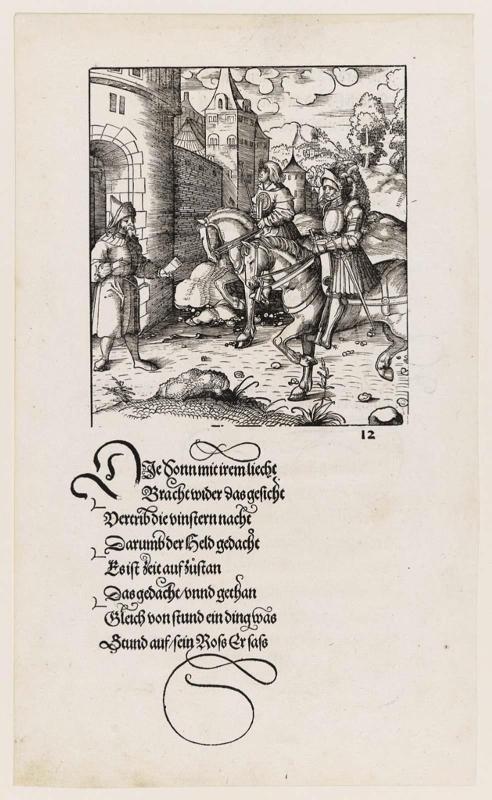 12
DIe Sonn mit irem liecht
Bracht wider das gesicht
Vertrib die vinstern nacht
Darumb der Held gedacht
Es ist zeit auf zustan
Das gedacht / vnnd gethan
Gleich von stund ein ding was
Stund auf / sein Ross Er sass